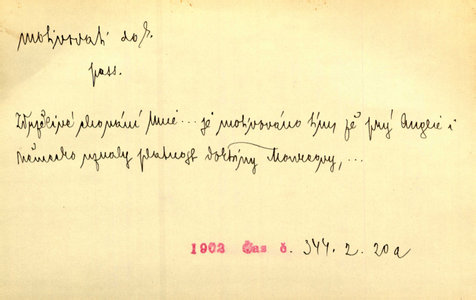 motivovati dok.
pass.
Zdrželivé chování Unie... je motivováno tím, že prý Anglie i
Německo uznaly platnost doktriny Monroeovy, ...
1902 Čas č. 344. 2. 20a